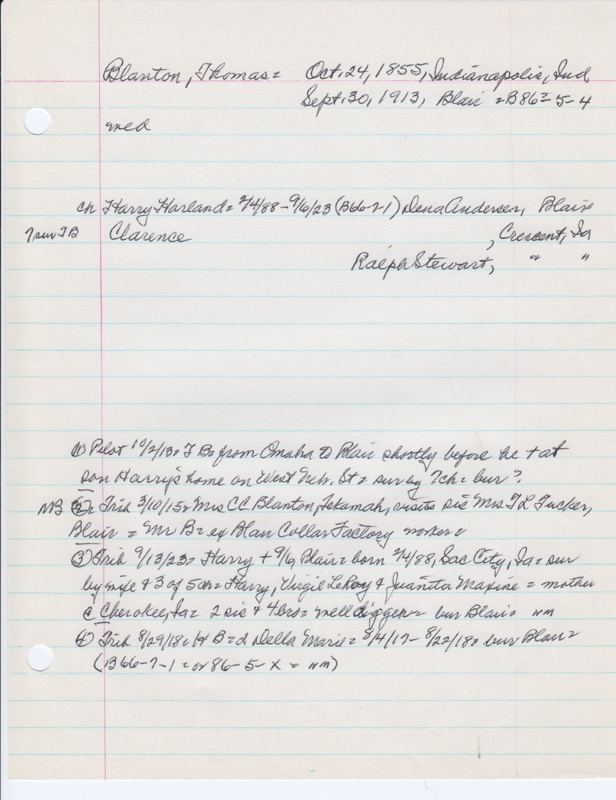 Blanton, Thomas = Oct. 24, 1855, Indianapolis, Ind
Sept. 30, 1913, Blair = B86-5-4
med
ch Harry Harland = 2/4/88 - 9/6/23 (B66-7-1) Dena Andersen, Blair
7 sur TB Clarence , Crescent, Ia
Ralph Stewart, " "
(1) Pilot 10/2/13 = TB = from Omaha to Blair shortly before he + at
son Harry's home on West Neb. St = sur by 7 ch = bur ?
NB (2) = Trib 3/10/15 = Mrs CC Blanton, Tekamah, visits sis Mrs T L Tucker,
Blair = Mr B = ex Blair Collar Factory worker =
(3) Trib 9/13/23 = Harry + 9/6 Blair = born 2/4/88, Sac City, Ia = sur
by wife & 3 of 5 ch = Harry, Virgil LeRoy & Juanita Maxine = mother
@ Cherokee, Ia = 2 sis & 4 bros = well digger = bur Blair = nm
(4) Trib 8/29/18 = H B = d Della Marie = 8/4/17 - 8/22/18 = bur Blair =
(B66-7-1 = or 86-5-X = nm)